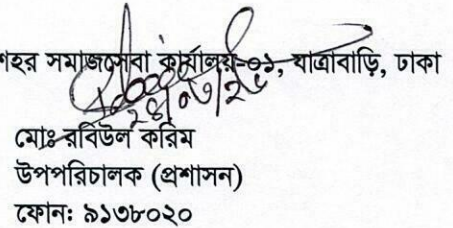 শহর সমাজসেবা কার্যালয়-০১, যাত্রাবাড়ি, ঢাকা
মোঃ রবিউল করিম
উপপরিচালক (প্রশাসন)
ফোন: ৯১৩৮০২০